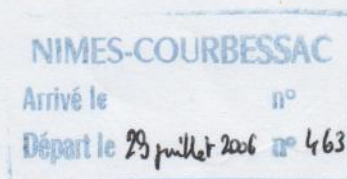 NIMES-COURBESSAC
Arrivé le n°
Départ le 29 juillet 2006 n° 463